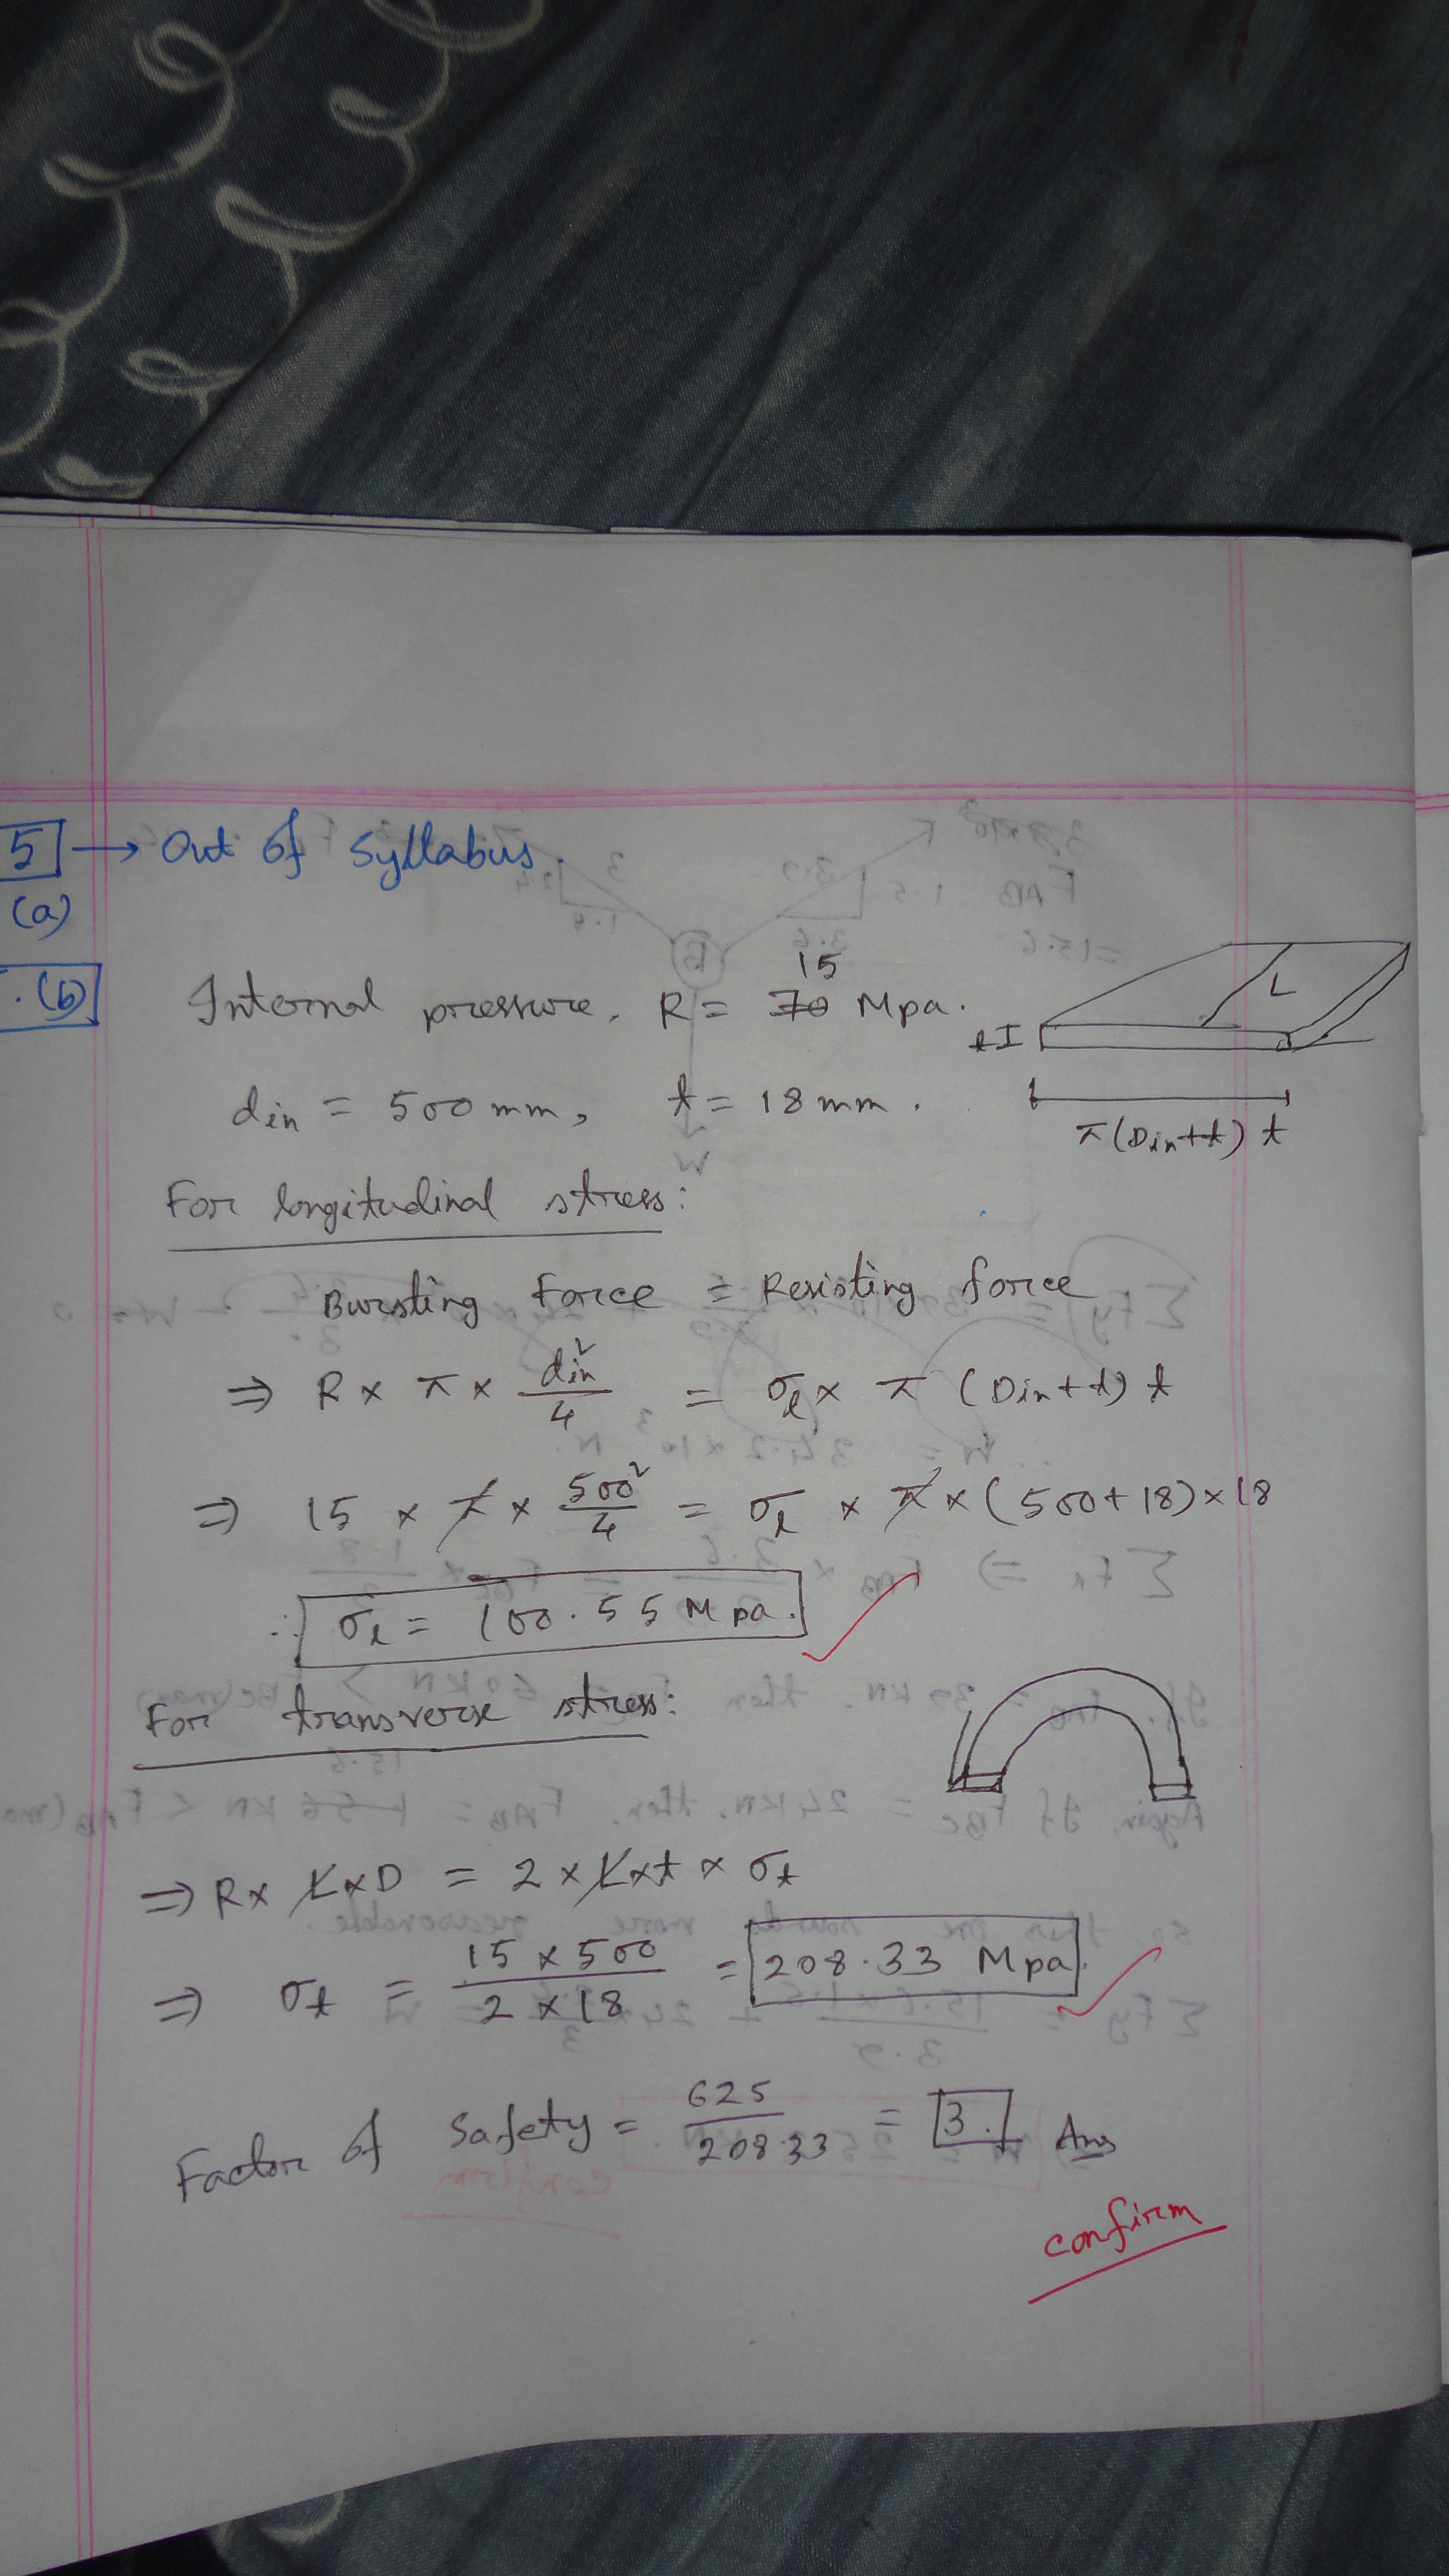 5 → Out of Syllabus.
(a)
.(b)
Internal pressure, R = 70 15 Mpa.
L
t
din = 500 mm, t = 18 mm.
π(Din+t) t
For longitudinal stress:
Bursting Force = Resisting force
⇒ R × π × din²/4 = σl × π (Din+t) t
⇒ 15 × π × 500²/4 = σl × π × (500+18)×18
∴ σl = 100.55 Mpa.
For transverse stress:
⇒ R × L × D = 2 × L × t × σt
⇒ σt = 15 × 500 / 2 × 18 = 208.33 Mpa.
Factor of Safety = 625/208.33 = 3. Ans
confirm